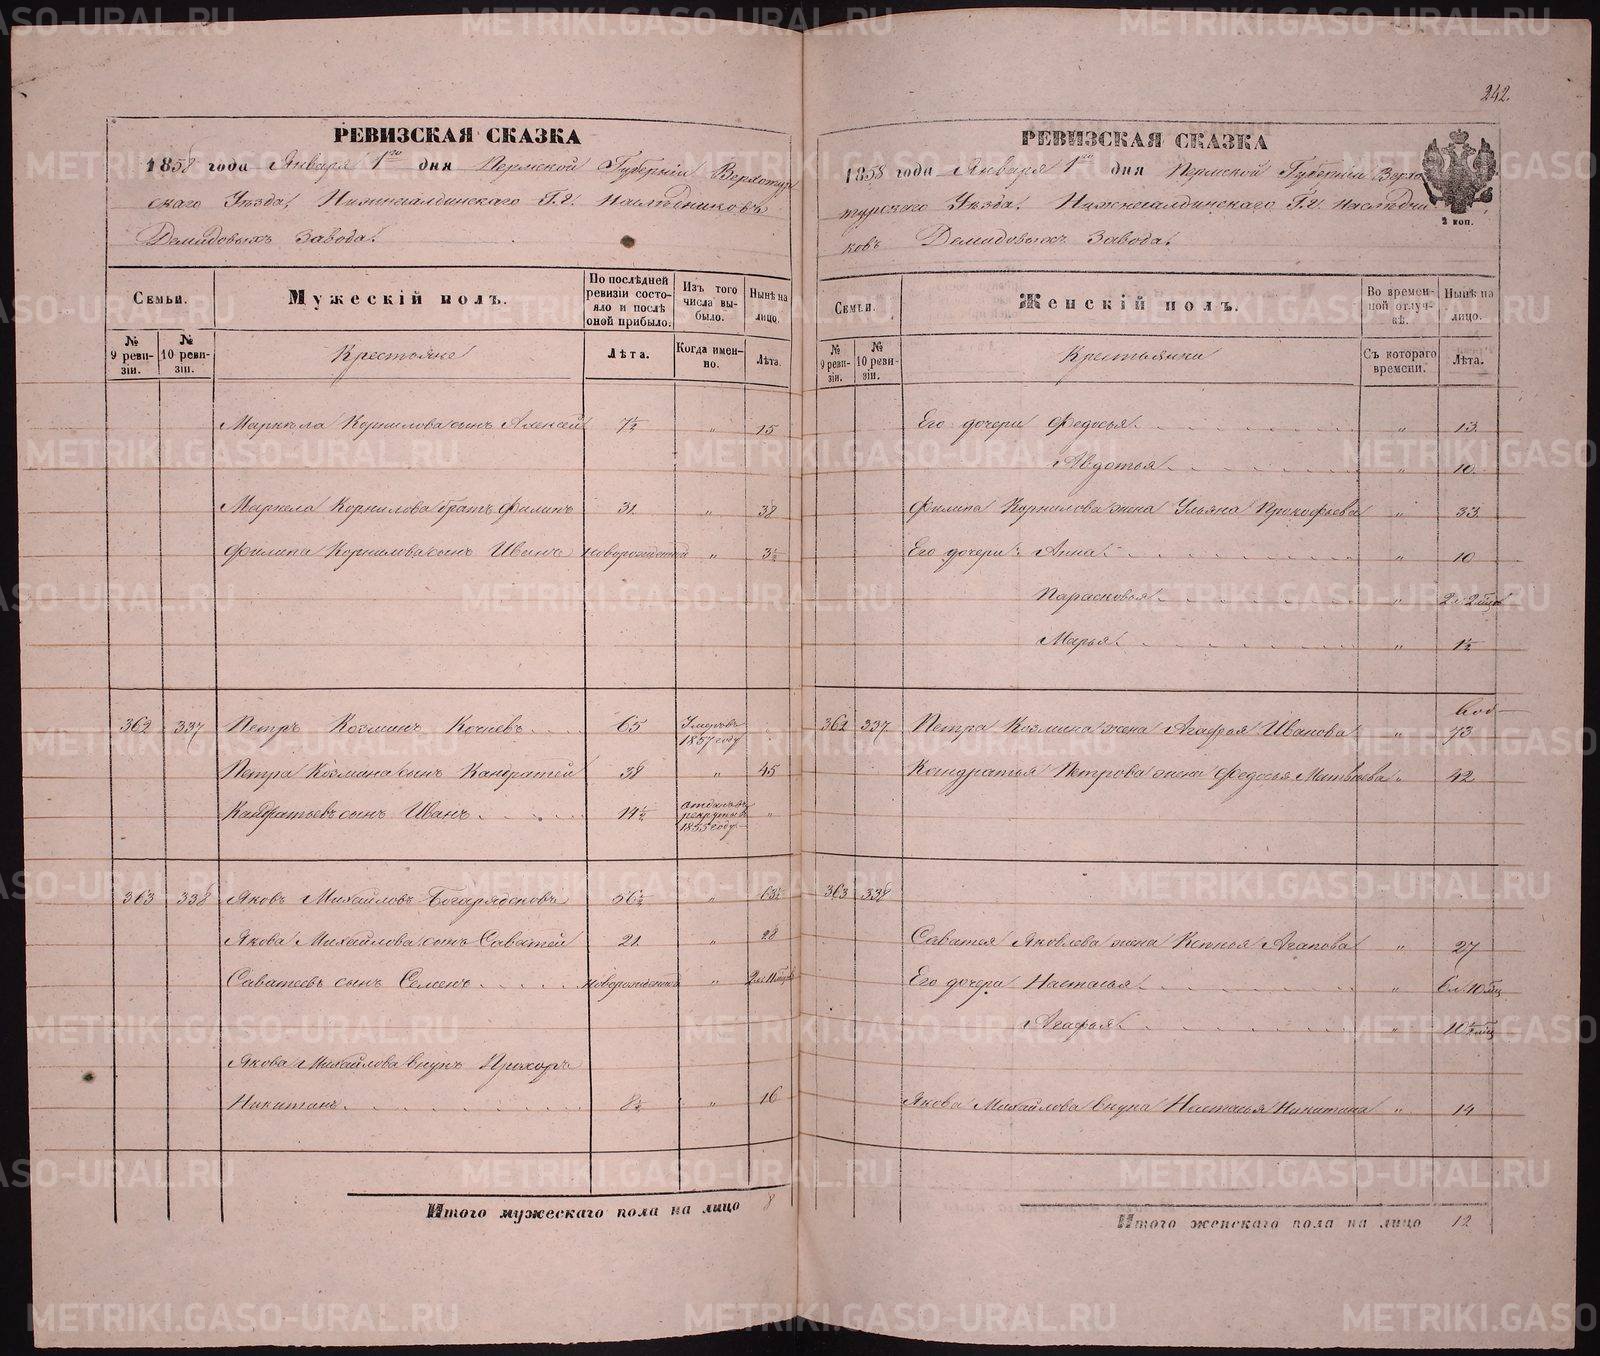 242.
РЕВИЗСКАЯ СКАЗКА
1858 года Января 1го дня Пермской Губернiи Верхотур
скаго Уѣзда Нижнесалдинскаго Г.г. Наслѣдниковъ
Демидовыхъ Завода.
Семьи.
Мужескiй полъ.
По послѣдней ревизiи состояло и послѣ оной прибыло.
Изъ того числа выбыло.
Нынѣ на лицо.
№ 9 ревизiи.
№ 10 ревизiи.
Крестьяне
Лѣта.
Когда именно.
Лѣта.
Маркела Корнилова сынъ Алексей 7½ " 15
Маркела Корнилова братъ Филипъ 31. " 38
Филипа Корнилова сынъ Иванъ новорожденной " 3½
362 337 Петръ Козминъ Кочневъ 65 Умеръ въ 1857 году
Петра Козмина сынъ Кандратей 38 " 45
Кандратьевъ сынъ Иванъ 14½ отданъ въ рекруты въ 1855 году "
363 338 Яковъ Михайловъ 56½ " 63½
Якова Михайлова сынъ Саватей 21. " 28
Саватеевъ сынъ Семенъ новорожденной " 2 л. 11 мцовъ
Якова Михайлова внукъ Прохоръ
Никитинъ 8½ " 16
Итого мужескаго пола на лицо 8
РЕВИЗСКАЯ СКАЗКА
1858 года Января 1го дня Пермской Губернiи Верхо
турскаго Уѣзда Нижнесалдинскаго Г.г. Наслѣдни
ковъ Демидовыхъ Завода.
2 коп.
Семьи.
Женскiй полъ.
Во временной отлучкѣ.
Нынѣ на лицо.
№ 9 ревизiи.
№ 10 ревизiи.
Крестьянки
Съ котораго времени.
Лѣта.
Его дочери Федосья " 13
Авдотья " 10
Филипа Корнилова жена Ульяна Прокофьева " 33
Его дочери: Анна " 10
Парасковья " 2 л. 2 мца
Марья " 1½
362 337 Петра Козмина жена Агафья Иванова " 73
Кондратья Петрова жена Федосья Матвѣева " 42
363 338
Саватея Яковлева жена Ксенья Агапова " 27
Его дочери Настасья " 6 л. 10 мц
Агафья " 10½ мц
Якова Михайлова внука Настасья Никитина " 14
Итого женскаго пола на лицо 12
METRIKI.GASO-URAL.RU